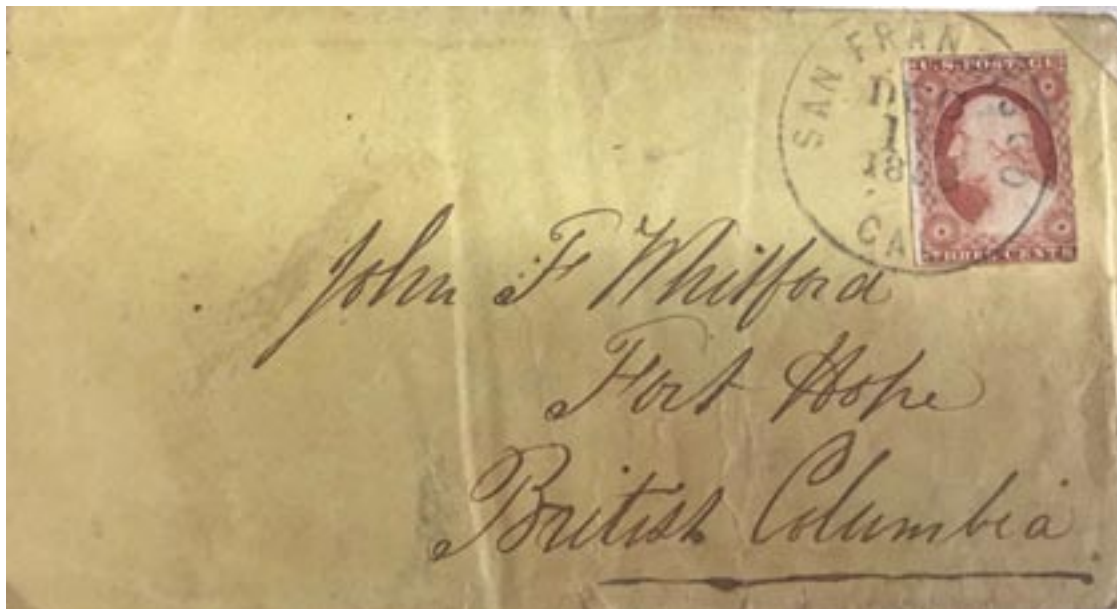 SAN FRANCISCO
CA
U.S. POSTAGE
THREE CENTS
John F Whitford
Fort Hope
British Columbia